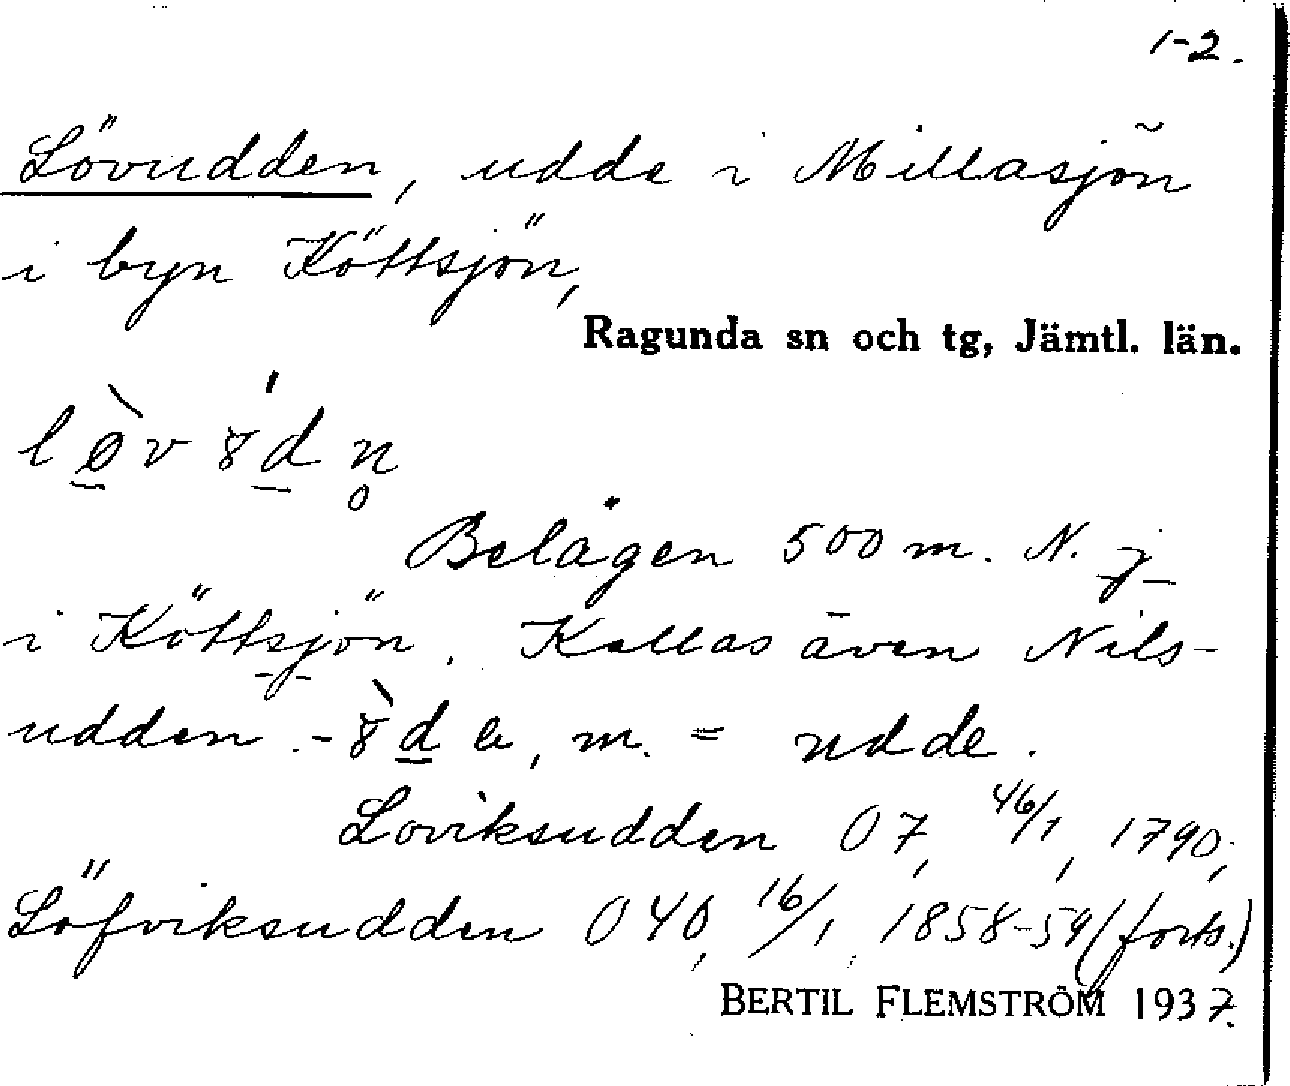 1-2.
Lövudden, udde i Millasjön
i byn Köttsjön,
Ragunda sn och tg, Jämtl. län.
lø̠̀v8d̠́n̥
Belägen 500 m. N. j
i Köttsjön. Kallas även Nils-
udden. - 8̀d̠e, m. = udde.
Loviksudden 07, 46/1, 1790;
Löfviksudden 040, 16/1, 1858-59 (forts.)
BERTIL FLEMSTRÖM 1937.